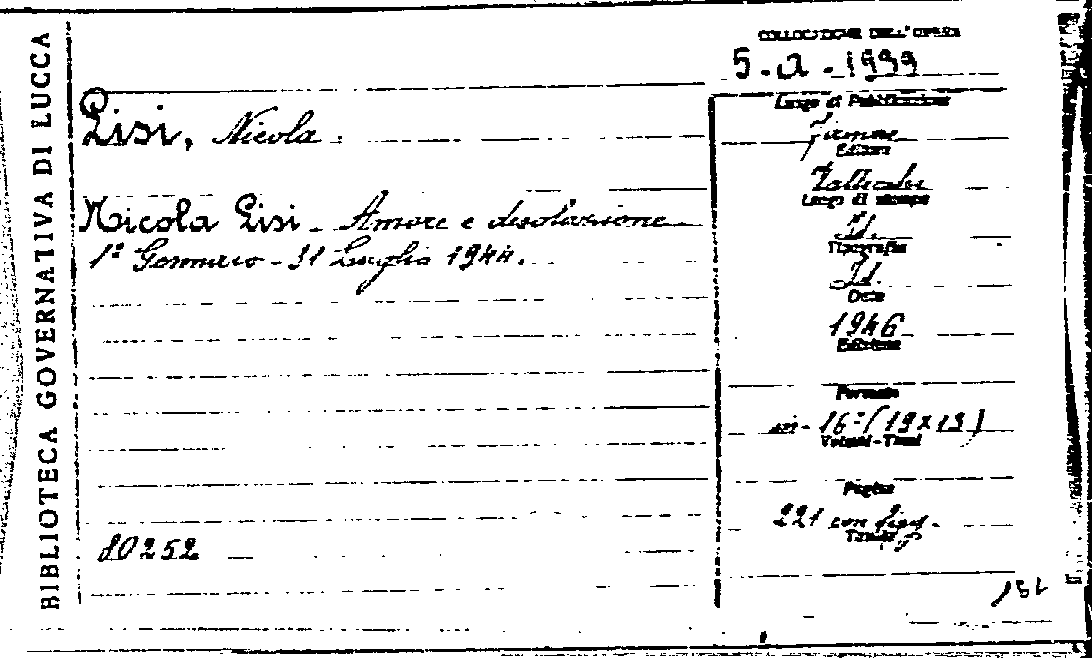 BIBLIOTECA GOVERNATIVA DI LUCCA
COLLOCAZIONE DELL'OPERA
5.a.1999
Lisi, Nicola.
Nicola Lisi - Amore e desolazione
1º Gennaio - 31 Luglio 1944.
80252
Luogo di Pubblicazione
Firenze
Editore
Vallecchi
Luogo di stampa
Id.
Tipografia
Id.
Data
1946
Edizione
Formato
in-16º (19x13)
Volumi-Tomi
Pagine
221 con
Tavole